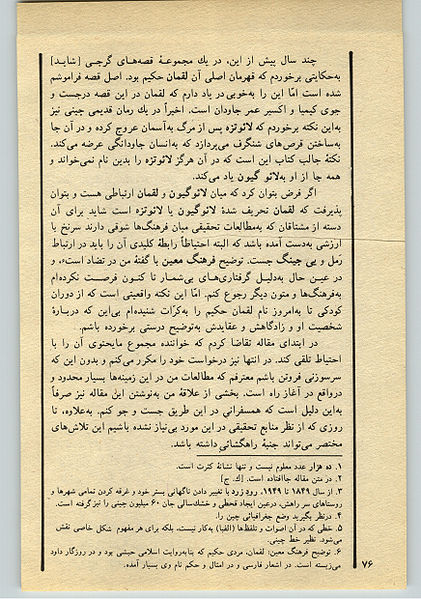 چند سال پیش از این، در یك مجموعهٔ قصه‌های گرجی [شاید]
به‌حکایتی برخوردم که قهرمان اصلی آن لقمان حکیم بود. اصل قصه فراموشم
شده است امّا این را به‌خوبی در یاد دارم که لقمان در این قصه درجست و
جوی کیمیا و اکسیر عمر جاودان است. اخیراً در یك رمان قدیمی چینی نیز
به‌این نکته برخوردم که لائوتزه پس از مرگ به‌آسمان عروج کرده و در آن جا
به‌ساختن قرص‌های شنگرف می‌پردازد که به‌انسان جاودانگی عرضه می‌کند.
نکتهٔ جالب کتاب این است که در آن هرگز لائوتزه را بدین نام نمی‌خواند و
همه جا از او به‌لائو گیون یاد می‌کند.
اگر فرض بتوان کرد که میان لائوگیون و لقمان ارتباطی هست و بتوان
پذیرفت که لقمان تحریف شدهٔ لائوگیون یا لائوتزه است شاید برای آن
دسته از مشتاقان که به‌مطالعات تحقیقی میان فرهنگ‌ها شوقی دارند سرنخ با
ارزشی به‌دست آمده باشد که البته احتیاطاً رابطهٔ کلیدی آن را باید در ارتباط
رَمل و یی جینگ جست. توضیح فرهنگ معین با گفتهٔ من در تضاد است۶، و
در عین حال به‌دلیل گرفتاری‌های بی‌شمار تا کنون فرصت نکرده‌ام
به‌فرهنگ‌ها و متون دیگر رجوع کنم. امّا این نکته واقعیتی است که از دوران
کودکی تا به‌امروز نام لقمان حکیم را به‌کرّات شنیده‌ام بی‌این که دربارهٔ
شخصیت او و زادگاهش و عقایدش به‌توضیح درستی برخورده باشم.
در ابتدای مقاله تقاضا کردم که خواننده مجموع مایحتوی آن را با
احتیاط تلقی کند. در انتها نیز درخواست خود را مکرر می‌کنم و بدون این که
سرسوزنی فروتن باشم معترفم که مطالعات من در این زمینه‌ها بسیار محدود و
درواقع در آغاز راه است. بخشی از علاقهٔ من به‌نوشتن این مقاله نیز صرفاً
به‌این دلیل است که همسفرانی در این طریق جست و جو کنم. به‌علاوه، تا
روزی که از نظر منابع تحقیقی در این مورد بی‌نیاز نشده باشیم این تلاش‌های
مختصر می‌تواند جنبهٔ راهگشائی داشته باشد.
۱. ده هزار عدد معلوم نیست و تنها نشانهٔ کثرت است.
۲. در متن مقاله جاافتاده است. [ك. ج]
۳. از سال ۱۸۴۹ تا ۱۹۴۹، رود زرد با تغییر دادن ناگهانی بستر خود و غرقه کردن تمامی شهرها و
روستاهای سر راهش، درعین ایجاد قحطی و خشك‌سالی جان ۶۰ میلیون چینی را نیز گرفته است.
۴. درنظر بگیرید وضع جغرافیائی چین را.
۵. خطی که در آن اصوات و تلفظ‌ها (الفبا) به‌کار نیست، بلکه برای هر مفهوم شکل خاصی نقش
می‌شود. نظیر خط چینی.
۶. توضیح فرهنگ معین: لقمان، مردی حکیم که بنابه‌روایت اسلامی حبشی بود و در روزگار داود
می‌زیسته است. در اشعار فارسی و در امثال و حکم نام وی بسیار آمده.
۷۶